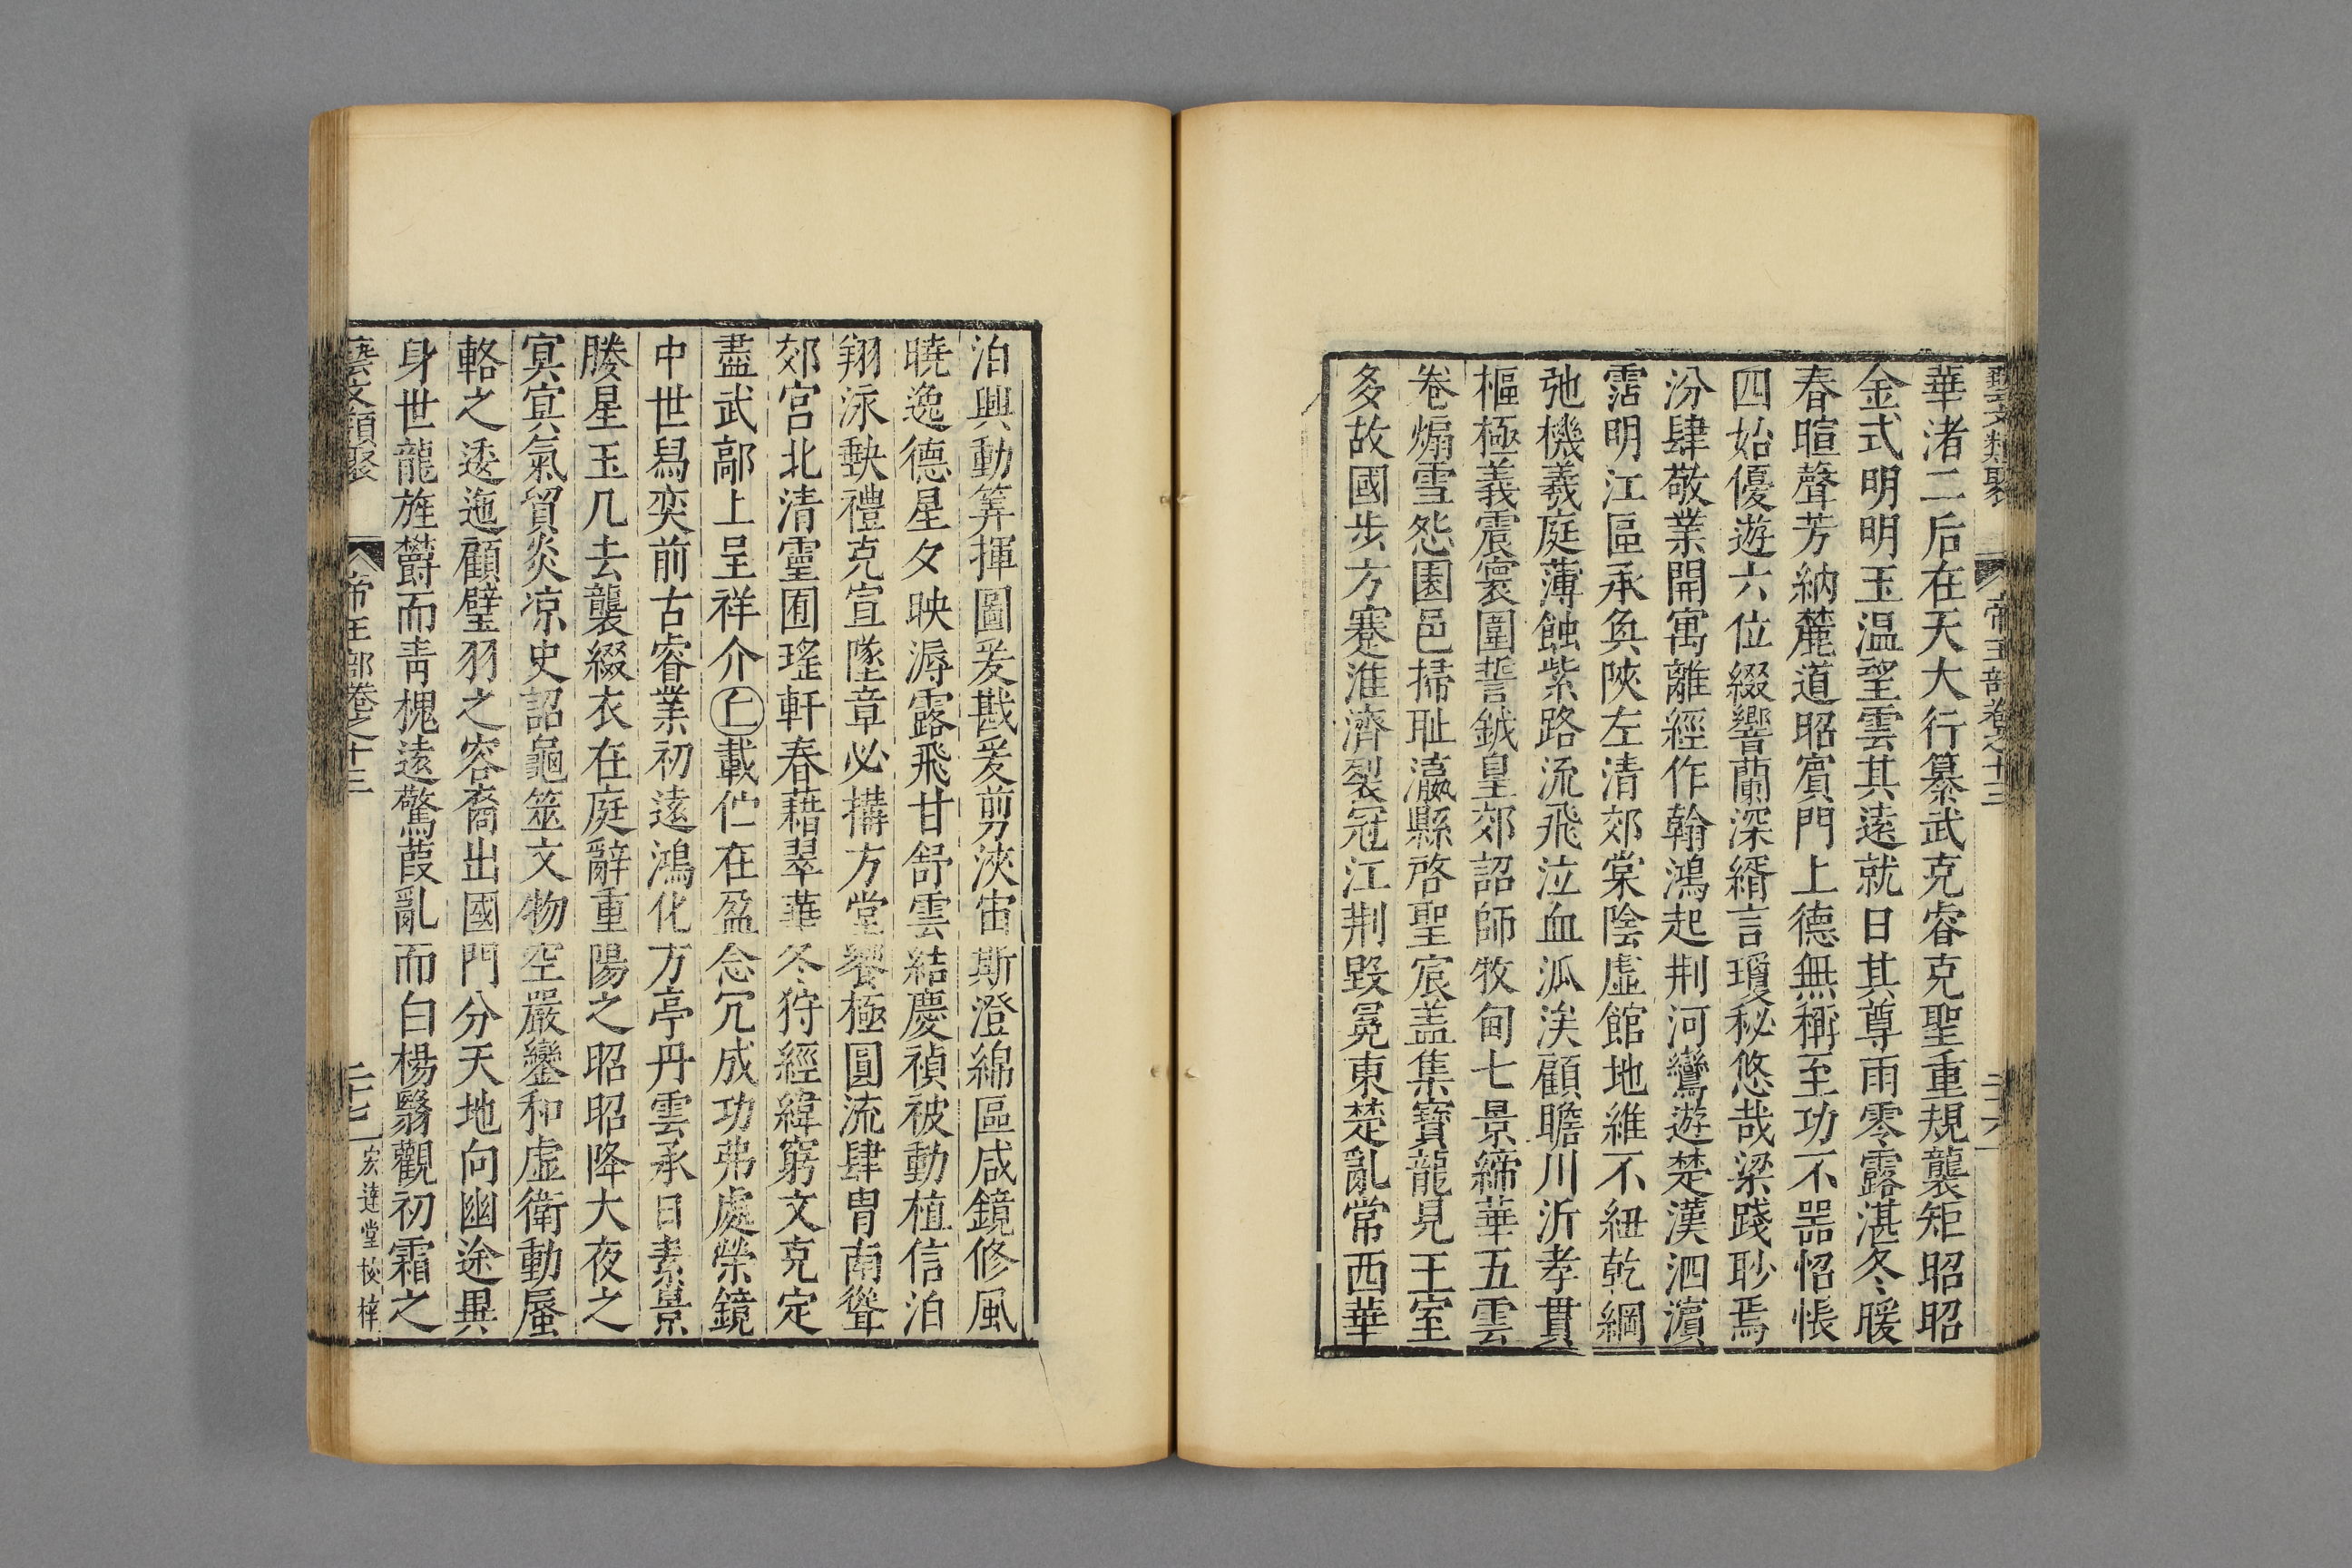 藝文類聚 帝王部卷之十三 二十六
華渚二后在天大行纂武克睿克聖重規襲矩昭昭
金式明明玉温望雲其遠就日其尊雨零露湛冬暖
春暄聲芳納麓道昭賓門上德無稱至功不器怊悵
四始優遊六位綴響蘭深緝言瓊秘悠哉梁踐眇焉
汾肆敬業開寓離經作翰鴻起荆河鸞遊楚漢泗濵
霑明江區承奐陝左清郊棠陰虛館地維不紐乾綱
弛機羲庭薄蝕紫路流飛泣血泒涘顧瞻川沂孝貫
樞極義震寰圍誓鉞皇郊詔師牧甸七景締華五雲
卷煽雪怨園邑掃耻瀛縣啓聖宸盖集寳龍見王室
多故國步方蹇淮濟裂冠江荆毁冕東楚亂常西華
泊興動筭揮圖爰戡爰剪浹宙斯澄綿區咸鏡修風
曉逸德星夕映溽露飛甘舒雲結慶禎被動植信泊
翔泳㪇禮克宣墜章必搆方堂饗極圓流肆胄南聳
郊宮北清靈囿瑤軒春藉翠華冬狩經緯窮文克定
盡武鄗上呈祥介㠪載伫在盈念冗成功弗處榮鏡
中世舄奕前古睿業初遠鴻化方亭丹雲承日素景
媵星玉几去襲綴衣在庭辭重陽之昭昭降大夜之
冥冥氣貿炎凉史詔龜筮文物空嚴鑾和虛衛動蜃
輅之逶迤顧璧羽之容裔出國門分天地向幽途異
身世龍旌欝而靑槐遠驚葭亂而白楊翳觀初霜之
藝文類聚 帝王部卷之十三 二十七 宏達堂校梓